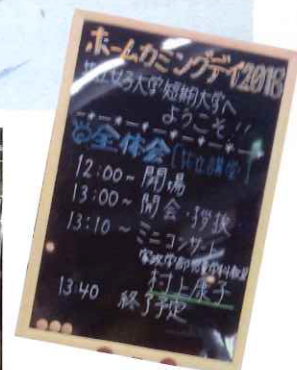 ホームカミングデイ2018
女子大学・短期大学へ
ようこそ!!
全体会
12:00~ 開場
13:00~ 開会・挨拶
13:10~ ミニコンサート
家政学部児童学科教員
村上康子
13:40 終了予定